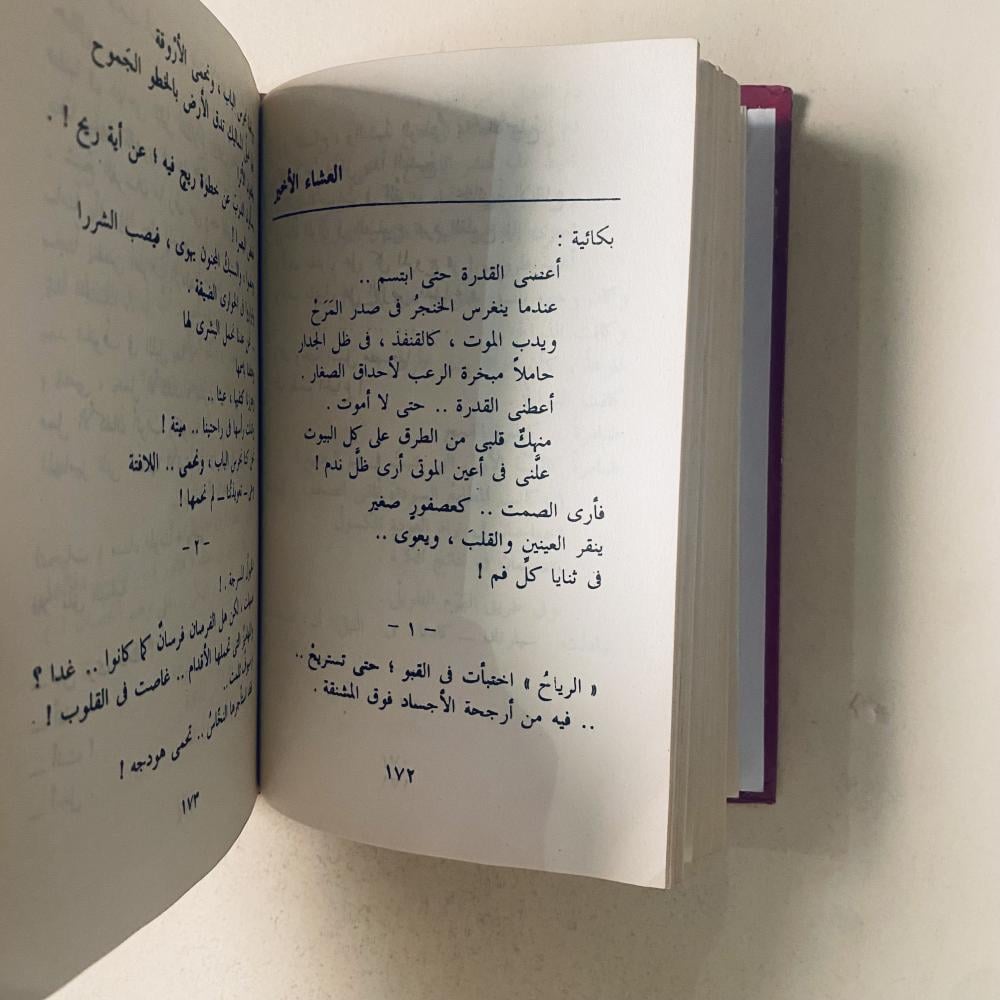 العشاء الأخير
بكائية :
أعطنى القدرة حتى ابتسم ..
عندما ينغرس الخنجرُ فى صدر المَرَحْ
ويدب الموت ، كالقنفذ ، فى ظل الجدار
حاملاً مبخرة الرعب لأحداق الصغار .
أعطنى القدرة .. حتى لا أموت .
منهكٌ قلبى من الطرق على كل البيوت
علَّنى فى أعين الموتى أرى ظلَّ ندم !
فأرى الصمت .. كعصفورٍ صغير
ينقر العينين والقلبَ ، ويعوى ..
فى ثنايا كلِّ فم !
– ١ –
« الرياحُ » اختبأت فى القبو ؛ حتى تستريحْ ..
.. فيه من أرجحة الأجساد فوق المشنقة .
١٧٢
الباب ، ونحمى الأرْوقة
تدق الأرض بالخطو الجَموح
عن خطوة ريح فيه ؛ عن أية ريح ! .
الجنون يهوى ، فيصب الشررا
فى الحوارى الضيقة .
نحمل البشرى لها
عبثا ..
رأسها فى راحتينا .. ميتة !
نحرس الباب ، ونحمى .. اللافتة
لم نحمها !
– ٢ –
لكن هل الفرسان فرسانٌ كما كانوا .. غدا ؟
تحملها الأقدام .. غاصت فى القلوب !
.. تحمى هودجه !
١٧٣